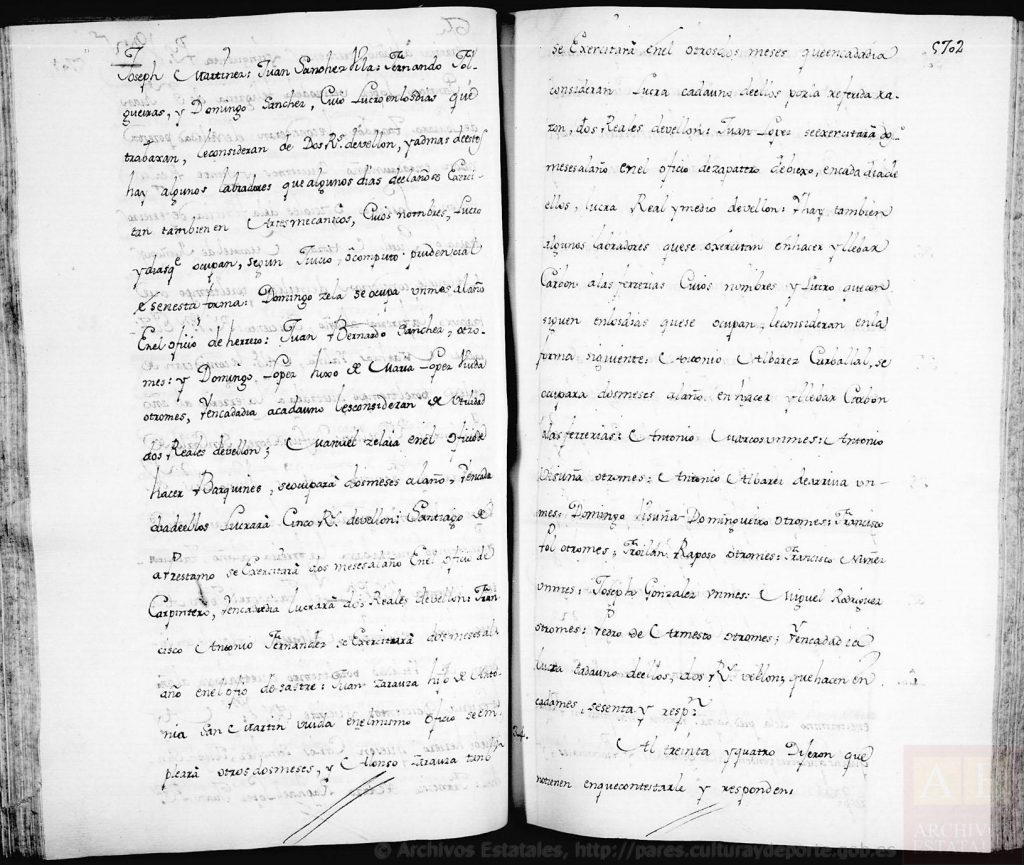 Joseph Martinez: Juan Sanchez Vila: Fernando Fol-
gueiras, y Domingo Sanchez, Cuio Lucro enlosdias que
trabaxan, leconsideran de Dos Rs. devellon, yadmas deestos
hay algunos labradores quealgunos dias delaño se Exerci-
tan tambien en Artesmecanicos, Cuios nombres, Lucro
ydiasqe ocupan, segun Juicio, ô computo prudencial
es enesta forma: Domingo zela se ocupa unmes alaño
Enel oficio de herrero: Juan Bernardo Sanchez, otro-
mes: y Domingo Lopez hixo de Maria Lopez Viuda
otromes, yencadadia acadauno lesconsideran de Utilidad
dos Reales devellon; Manuel zelaia enel oficio de
hacer Barquines, seocupará dosmeses alaño, yencada
diadeellos Lucrará Cinco Rs. devellon: Santiago de
Arrestamo se Exercitará dos mesesalaño Enel oficio de
Carpintero, yencadadia lucrará dos Reales devellon: Fran
cisco Antonio Fernandez se Exercitará dosmesesal
año enel ofizio desastre: Juan Zarauza hijo de Anto-
nia San Martin viuda enelmismo oficio seem
pleará otros dosmeses, y Alonso Zarauza
se Exercitará enel otrosdos meses queencadadia
consideran Lucra cadauno deellos porla referida ra-
zon, dos Reales devellon: Juan Lopez seexercitará dos
mesesalaño enel oficio dezapatero debiexo, encada diade
ellos, lucra Real ymedio devellon: Yhay tambien
algunos labradores quese exercitan enhacer yllebar
Carbon alas ferrerias Cuios nombres y Lucro quecon
siguen enlosdias quese ocupan, leconsideran enla
forma siguiente: Antonio Albarez Carballal, se
ocupara dosmeses alaño enhacer yllebar Carbon
alas ferrerias: Antonio Marcos unmes: Antonio
Visuña otromes: Antonio Albarez dearriva un-
mes: Domingo Visuña Domingueiro otromes: Francisco
Fol otromes; Froilán Raposo otromes: Francisco Nuñez
unmes: Joseph Gonzalez unmes: Miguel Rodriguez
otromes: Pedro de Armesto otromes; yencadadia
lucra cadauno deellos, dos Rs. vellon, quehacen en
cadames, sesenta y respn.
34. Al treinta yquatro Dijeron que
notienen enquecontestarle y responden:
© Archivos Estatales, http://pares.culturaydeporte.gob.es
ARCHIVOS
ESTATALES